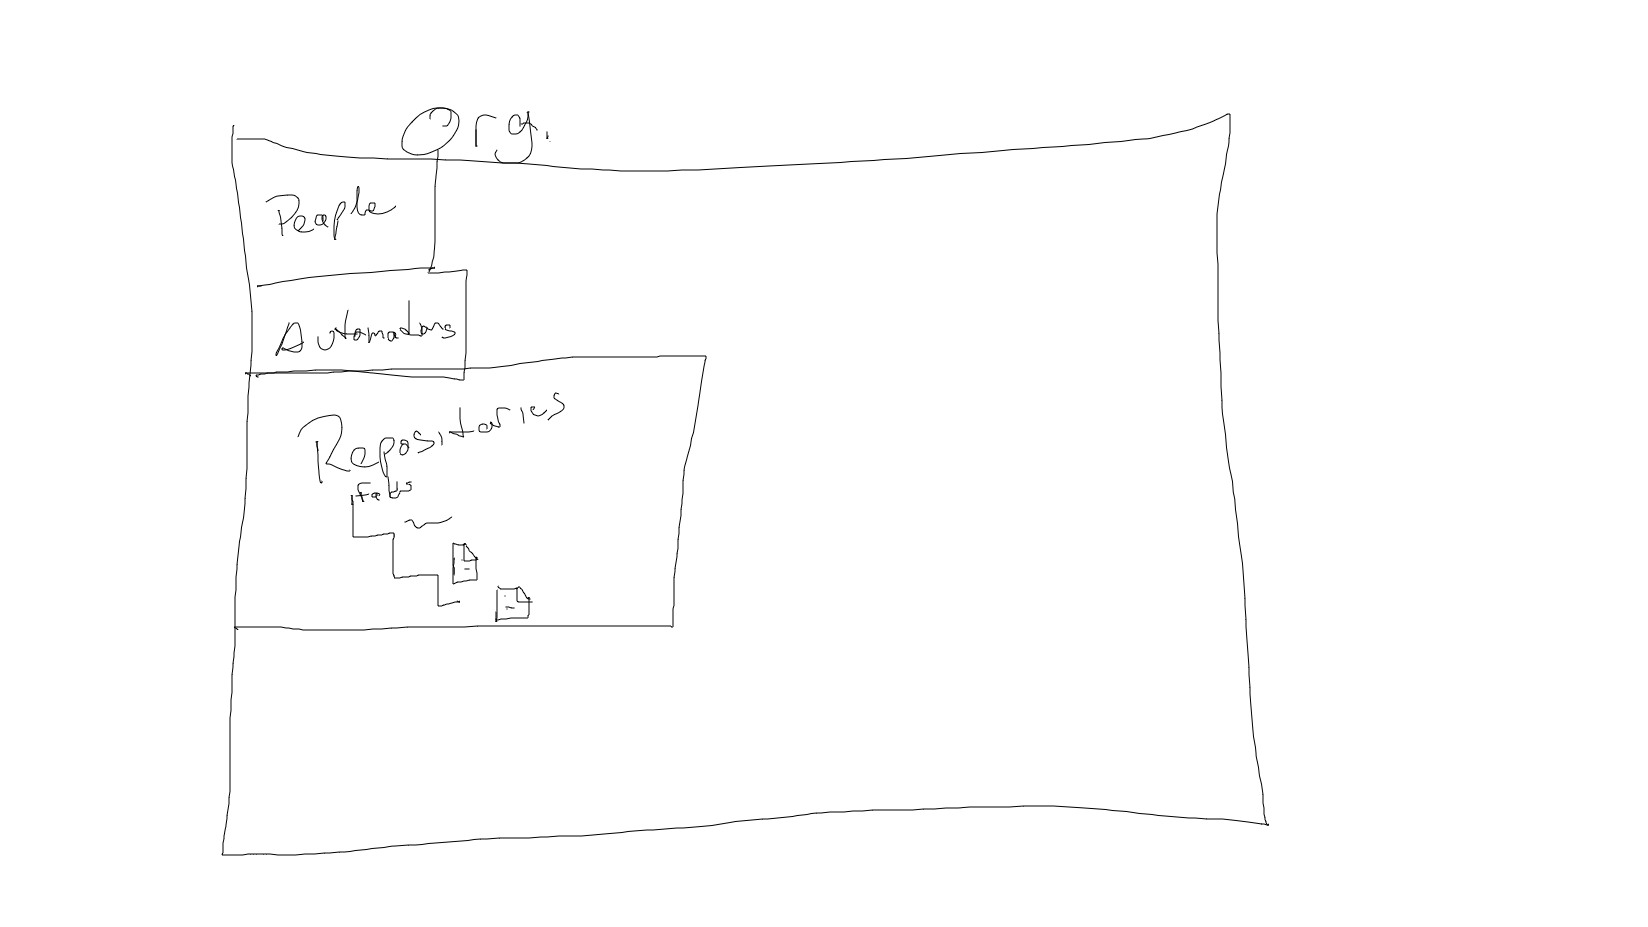 Org.
People
Automations
Repositories